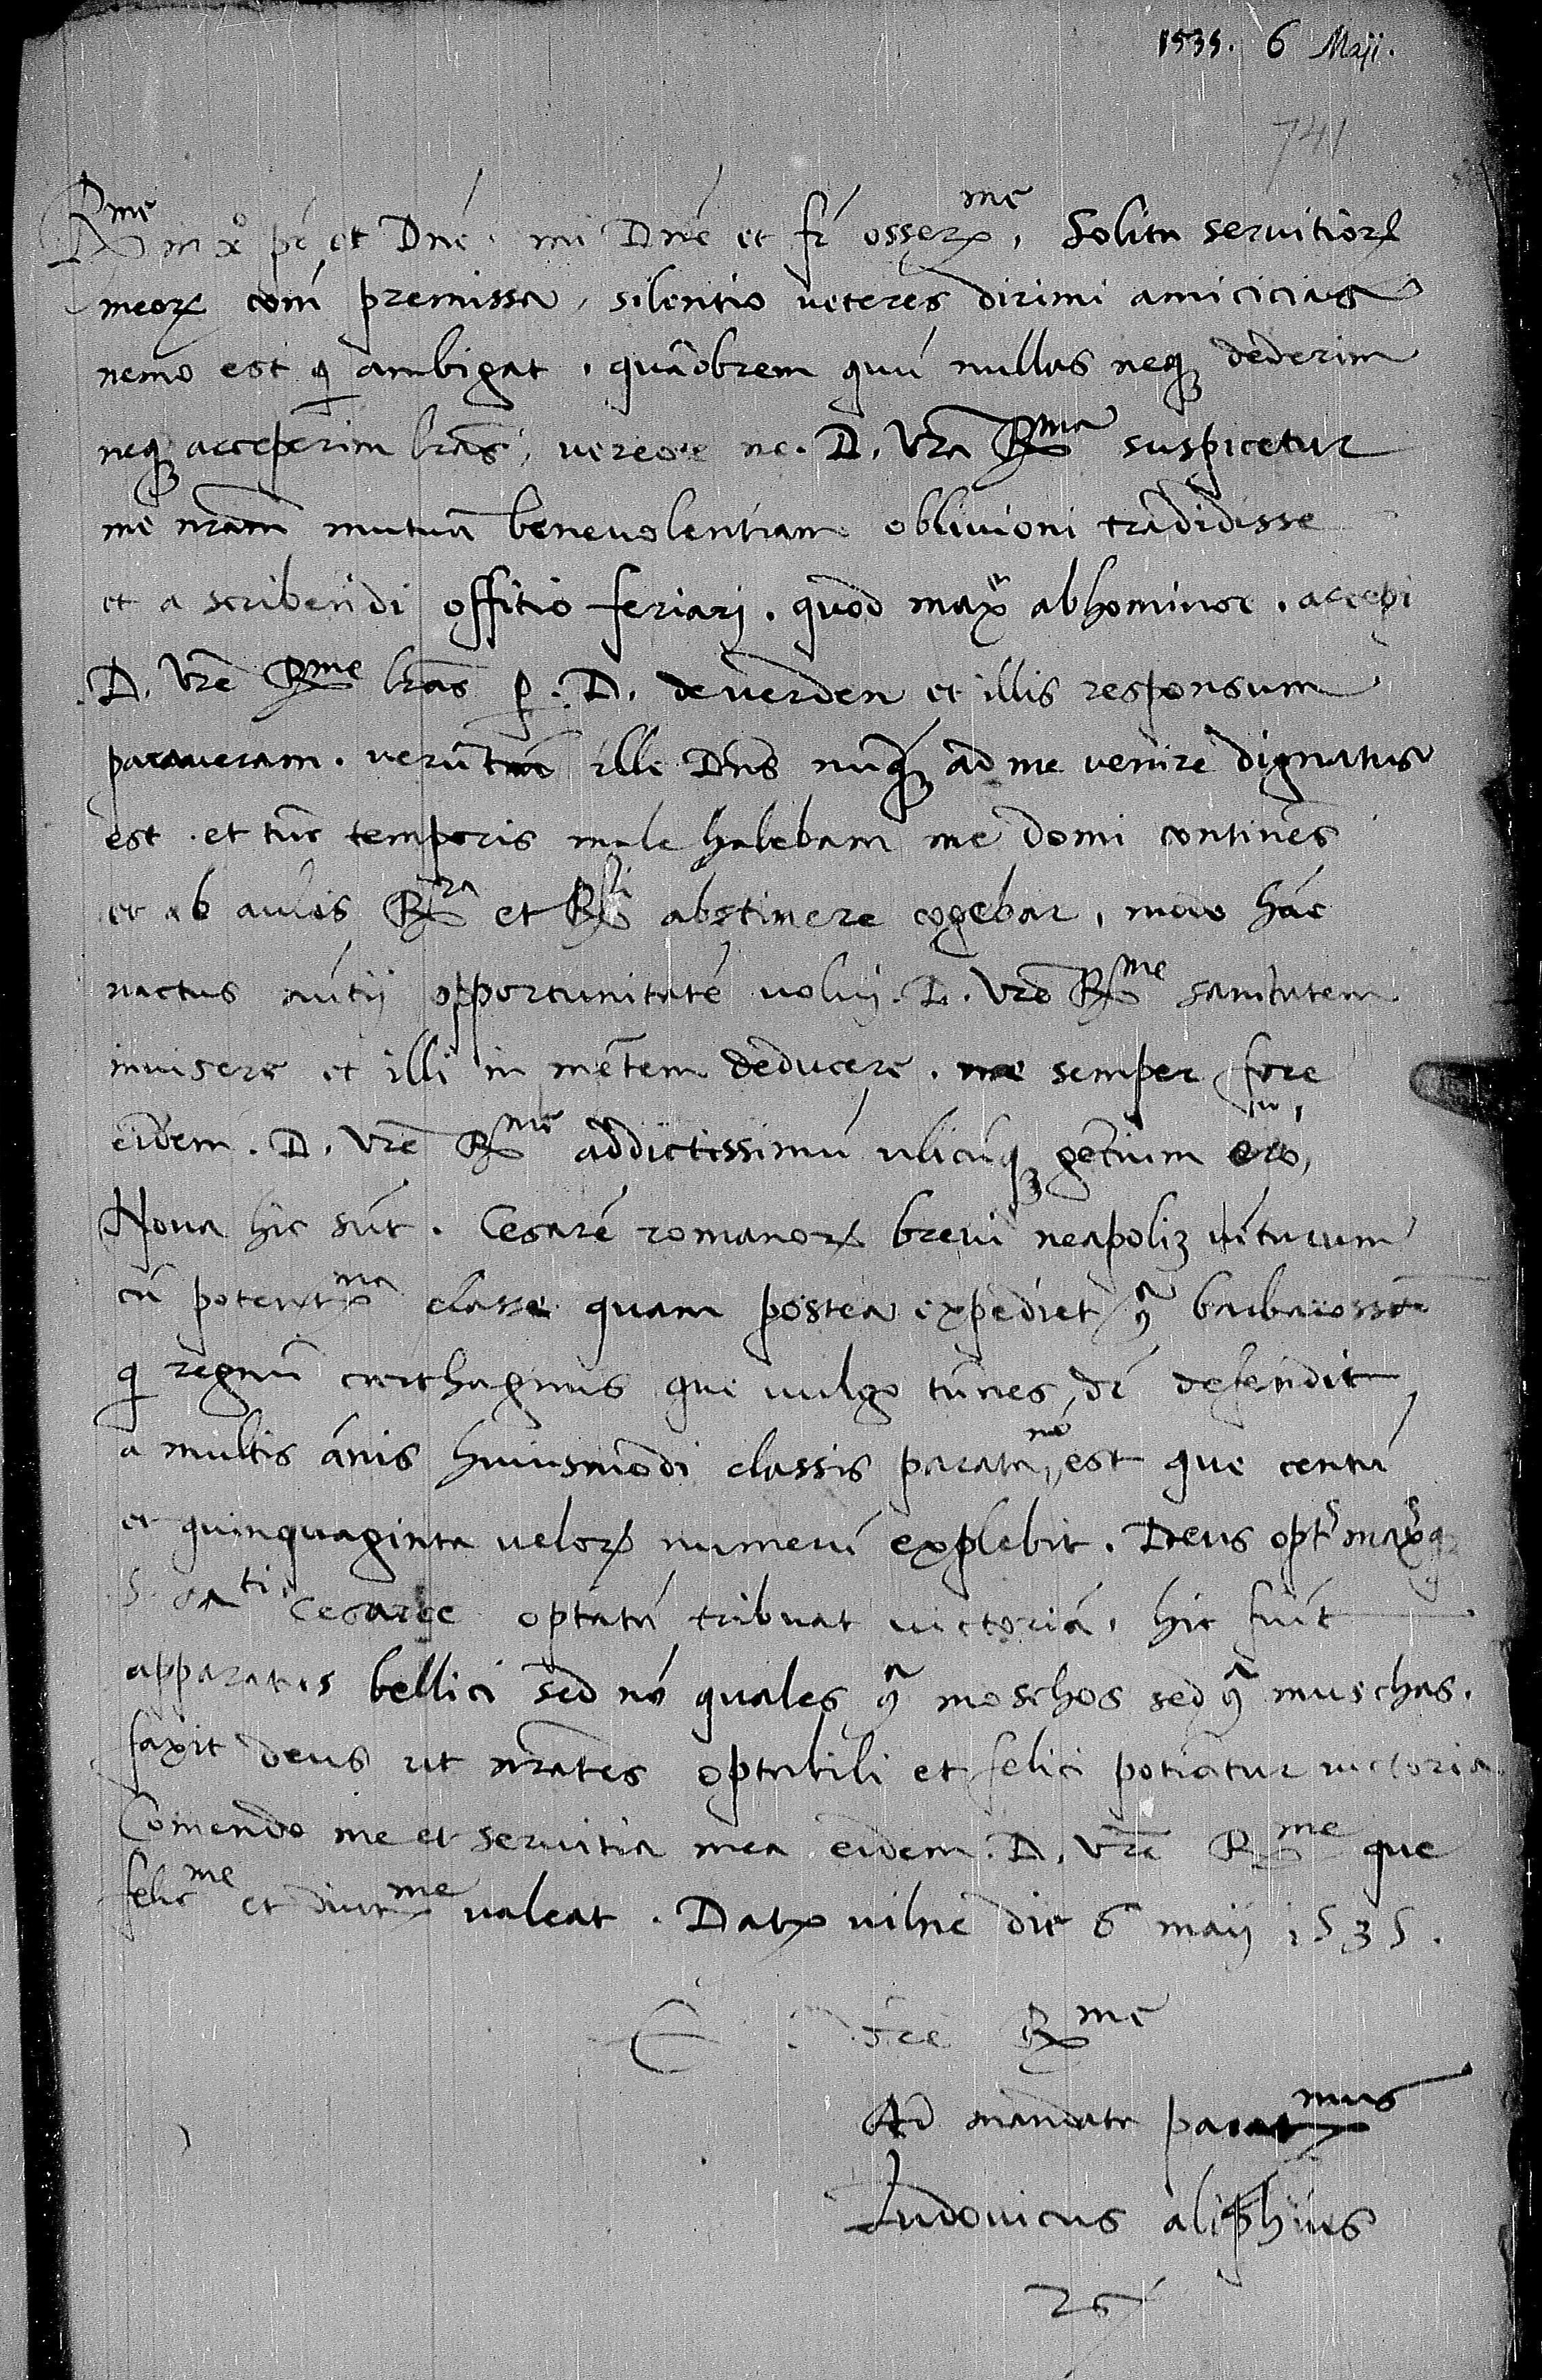 1535. 6 Maji.
741
R<sup>me</sup> in xo pr et Dne. mi Dne et fr osser<sup>me</sup>, Solita servitior
meor com premissa, silentio veteres dirimi amicicias
nemo est q ambigat. quaobrem quu nullas neq dederim
neq acceperim lras, vereor ne. D. Vra R<sup>ma</sup> suspicetur
me nram mutua benevolentiam oblivioni tradidisse
et a scribendi offitio feriari. quod max<sup>e</sup> abhominor. accepi
D. Vre R<sup>me</sup> lras p. D. de verden et illis responsum
paraveram. verutn ille Dns nuq ad me venire dignatus
est. et tuc temporis male habebam me domi continens
et ab aulis abstinere cogebar, modo hac
nactus nutij opportunitate volui. D. Vre R<sup>me</sup> sanitatem
invisere et illi in mentem deducere. me semper fore
eidem. D. Vre R<sup>me</sup> addictissimu ubicuq gentium ero,
Nova hic sut. Cesare romanor brevi neapoliz veturum
cu potent<sup>ma</sup> classe quam postea expediet barbarossam
q regnu carthaginis que vulgo tunes, dr defendit,
a multis anis huiusmodi classis parata no est que centu
et quinquaginta velor numeru explebit. Deus opt<sup>s</sup> max<sup>s</sup>q
S. Ma<sup>ti</sup> Cesaree optata tribuat victoria. hic fiut
apparatus bellici sed no quales moschos sed muschas.
faxit deus ut nrates optabili et felici potiatur victoria.
Comendo me et servitia mea eidem. D. Vre R<sup>me</sup> que
felic<sup>me</sup> et diut<sup>me</sup> valeat. Dat vilne die 6 maij 1535.
E. D. Vre R<sup>me</sup>
Ad mandata parat<sup>mus</sup>
Ludovicus aliphius